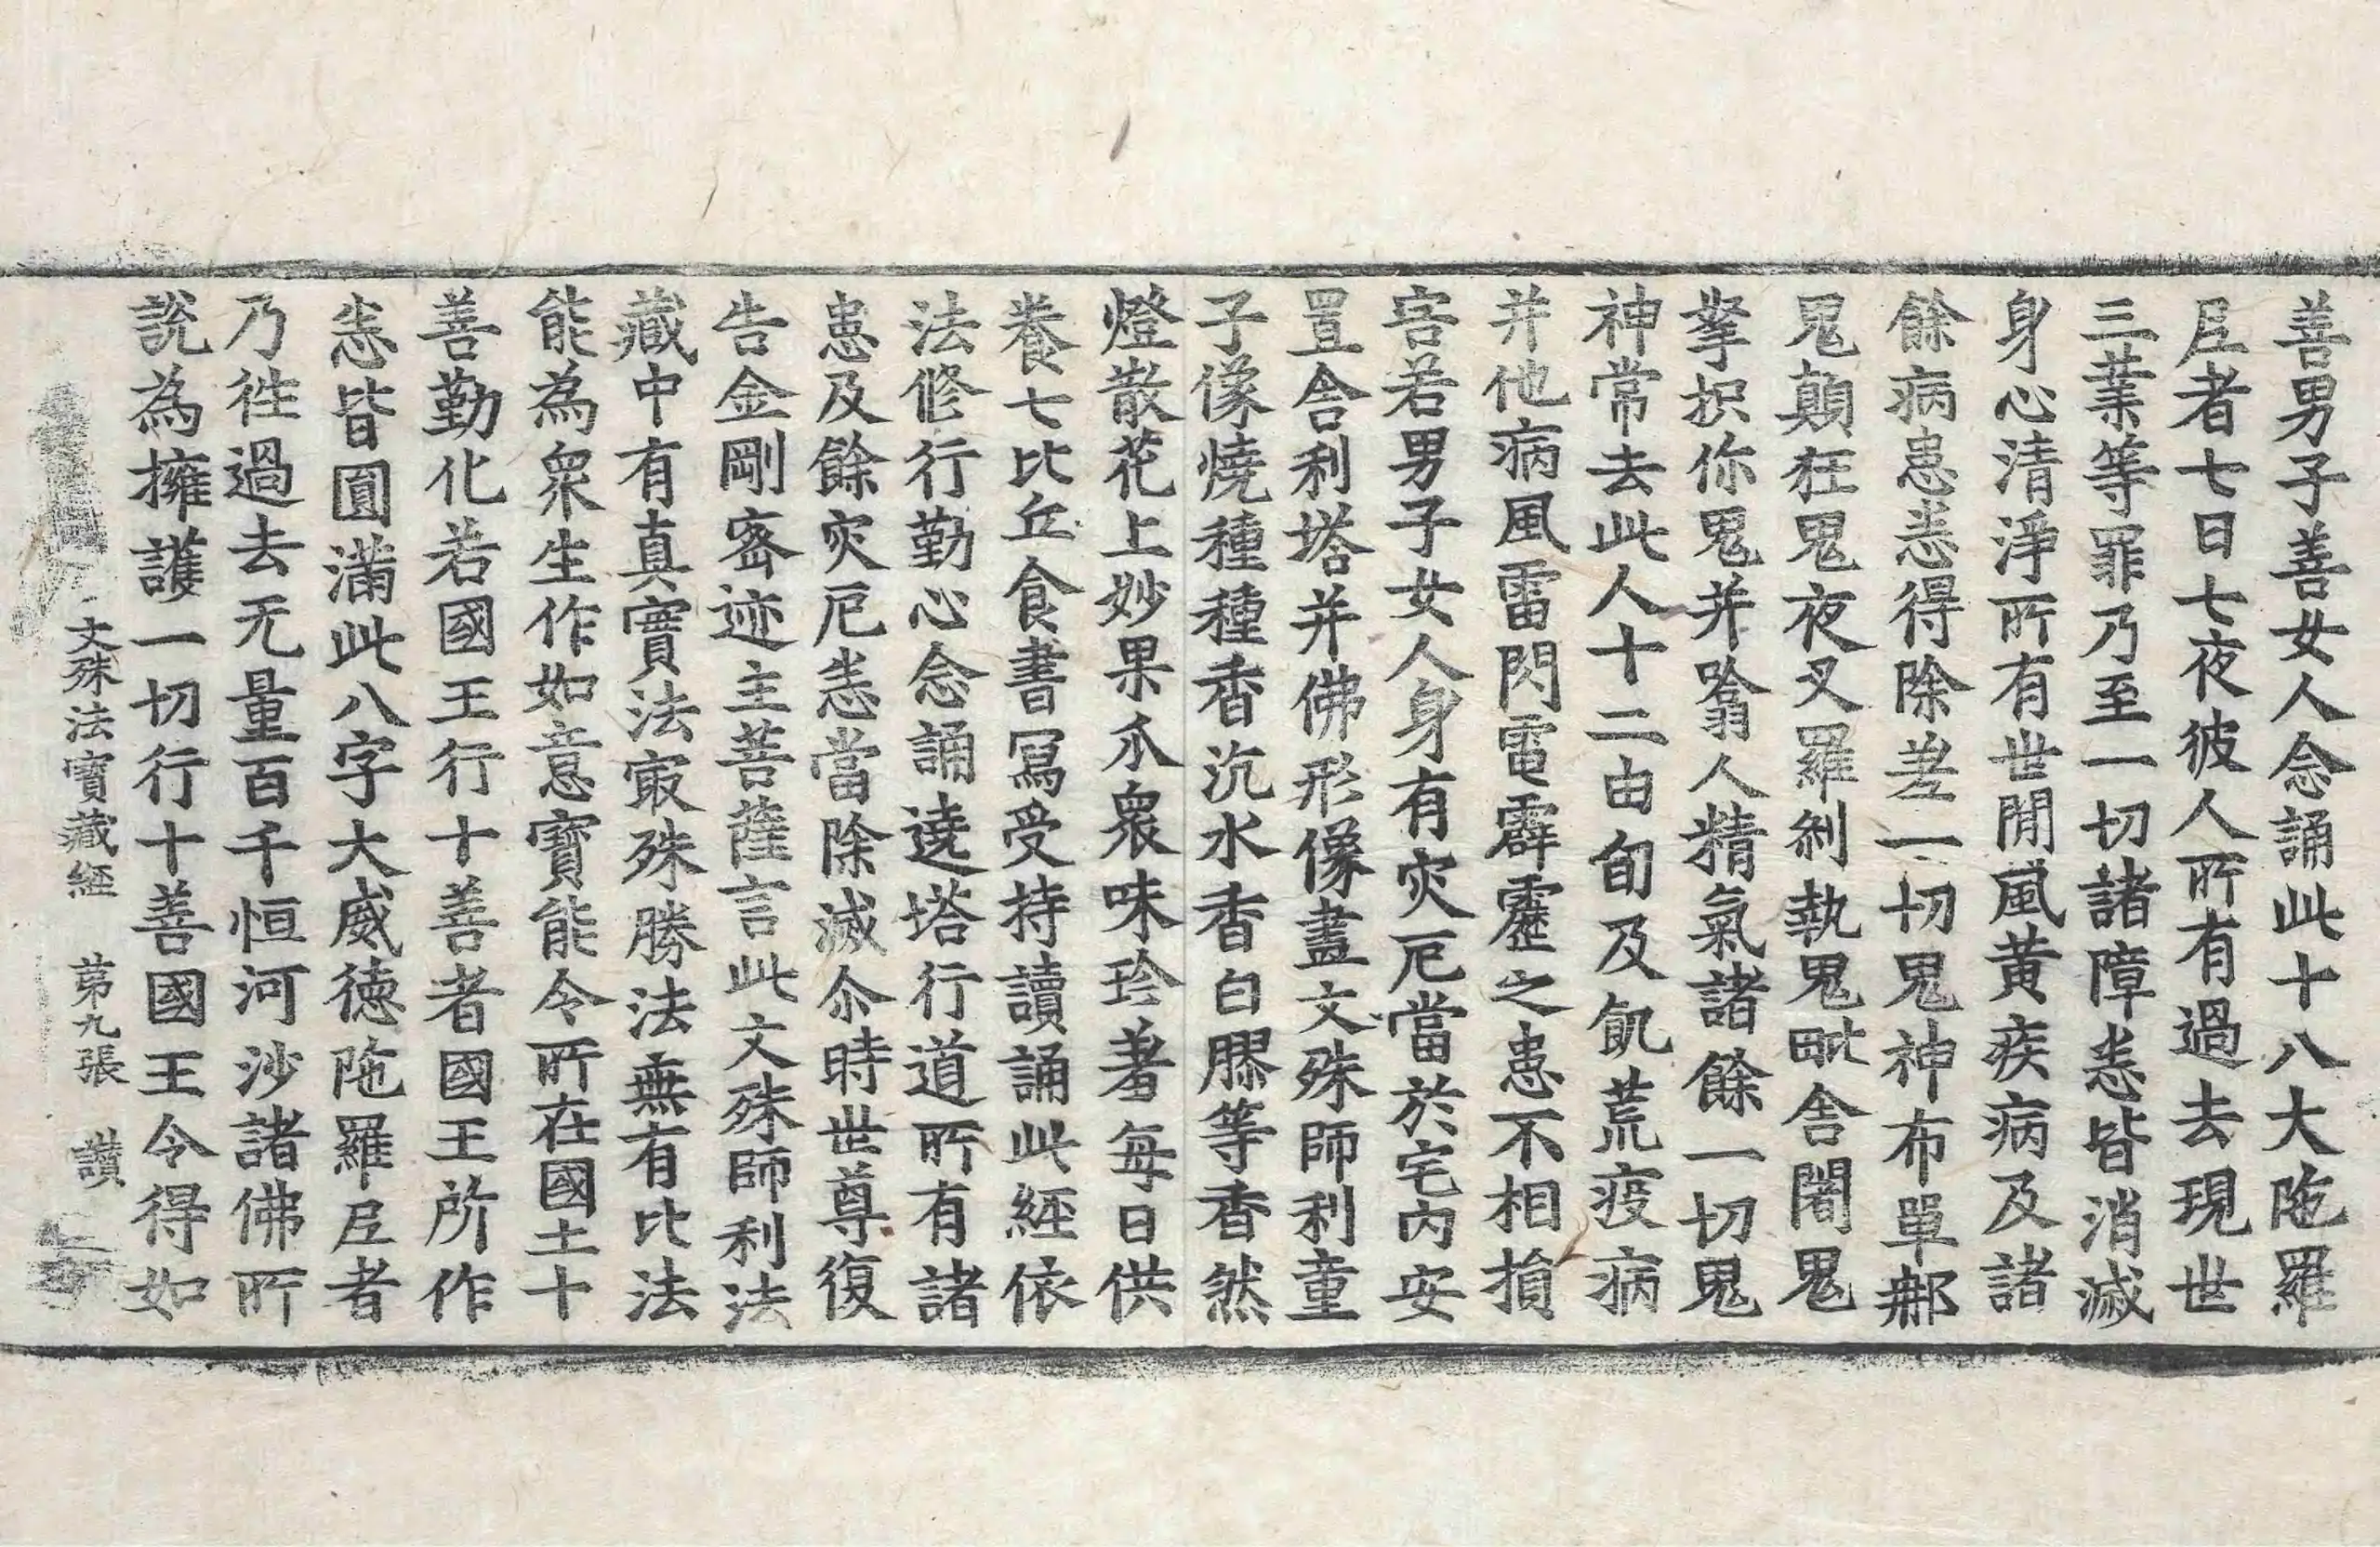 善男子善女人念誦此十八大陁羅
𡰱者七日七夜彼人所有過去現世
三業等罪乃至一切諸障悉皆消滅
身心清淨所有世間風黃疾病及諸
餘病患悉得除差一切鬼神布單那
鬼顛狂鬼夜叉羅剎執鬼毗舍闍鬼
拏枳你鬼并噏人精氣諸餘一切鬼
神常去此人十二由旬及飢荒疫病
并他病風雷閃電霹靂之患不相損
害若男子女人身有灾厄當於宅內安
置舍利塔并佛形像畫文殊師利童
子像燒種種香沉水香白膠等香然
燈散花上妙果瓜衆味珍羞每日供
養七比丘食書寫受持讀誦此經依
法修行勤心念誦遶塔行道所有諸
患及餘灾厄悉當除滅尒時世尊復
告金剛密迹主菩薩言此文殊師利法
藏中有真實法㝡殊勝法無有比法
能為衆生作如意寶能令所在國土十
善勤化若國王行十善者國王所作
悉皆圓滿此八字大威德陁羅𡰱者
乃往過去无量百千恒河沙諸佛所
說為擁護一切行十善國王令得如
文殊法寶藏經 第九張 讃